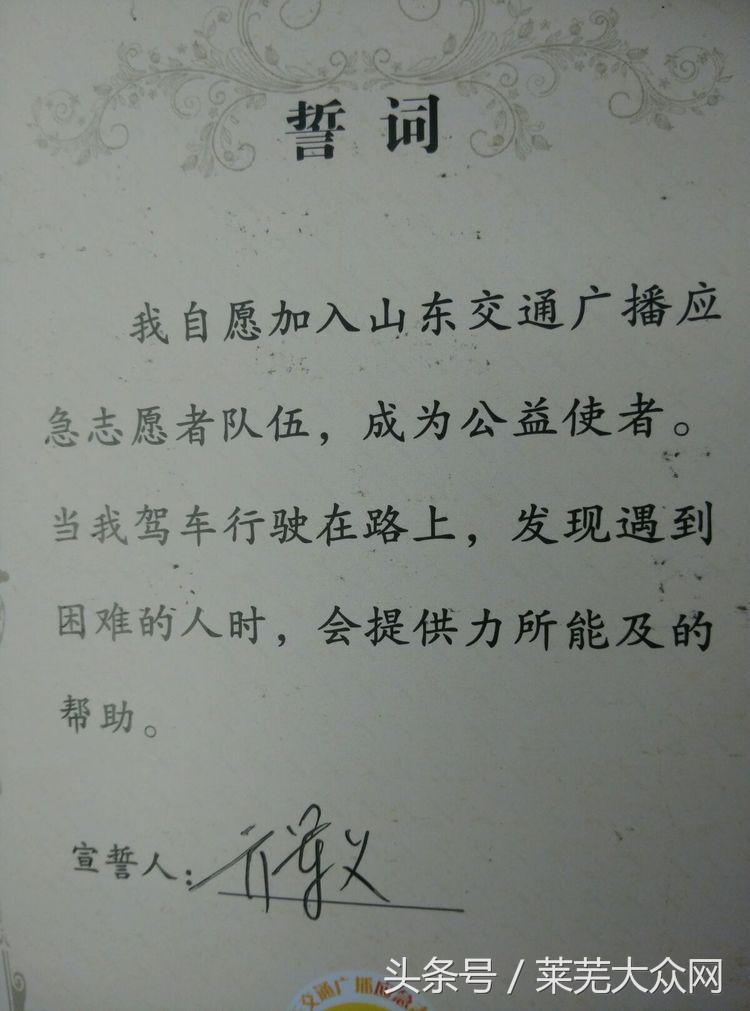 誓词
我自愿加入山东交通广播应
急志愿者队伍，成为公益使者。
当我驾车行驶在路上，发现遇到
困难的人时，会提供力所能及的
帮助。
宣誓人：
头条号／莱芜大众网
交通广播应急